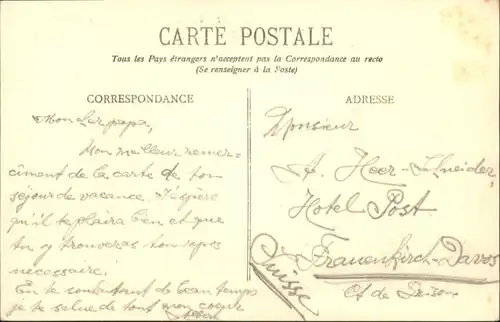 CARTE POSTALE
Tous les Pays étrangers n'acceptent pas la Correspondance au recto
(Se renseigner à la Poste)
CORRESPONDANCE
Mon cher papa,
Mon meilleur remer-
cîment de la carte de ton
séjour de vacance. J'espère
qu'il te plaira bien et que
tu y trouveras ton repos
necessaire.
En te souhaitant de beau temps
je te salue de tout mon coeur
Albert
ADRESSE
Monsieur
A. Heer-Schneider,
Hotel Post
Frauenkirch-Davos
Ct de Grisons
Suisse